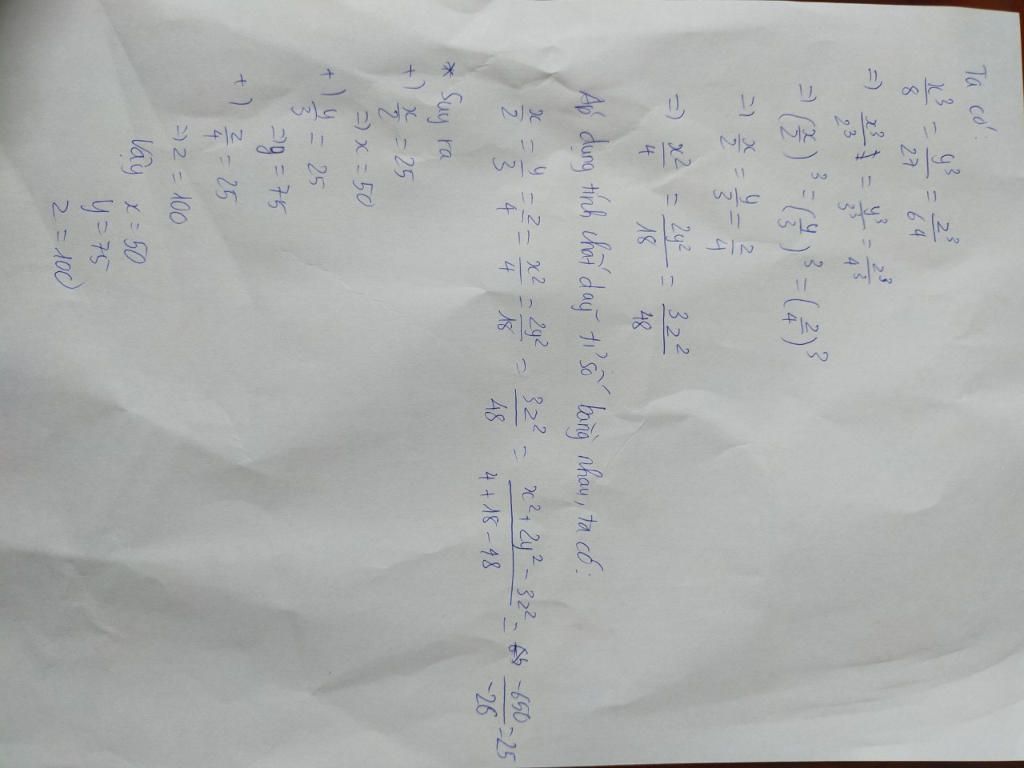 Ta có:
x³/8 = y³/27 = z³/64
=) x³/2³ = y³/3³ = z³/4³
=) (x/2)³ = (y/3)³ = (z/4)³
=) x/2 = y/3 = z/4
=) x²/4 = 2y²/18 = 3z²/48
Áp dụng tính chất dãy tỉ số bằng nhau, ta có:
x/2 = y/3 = z/4 = x²/4 = 2y²/18 = 3z²/48 = (x²+2y²-3z²)/(4+18-48) = -650/-26 = 25
* Suy ra
+) x/2 = 25
=) x = 50
+) y/3 = 25
=) y = 75
+) z/4 = 25
=) z = 100
Vậy x = 50
y = 75
z = 100